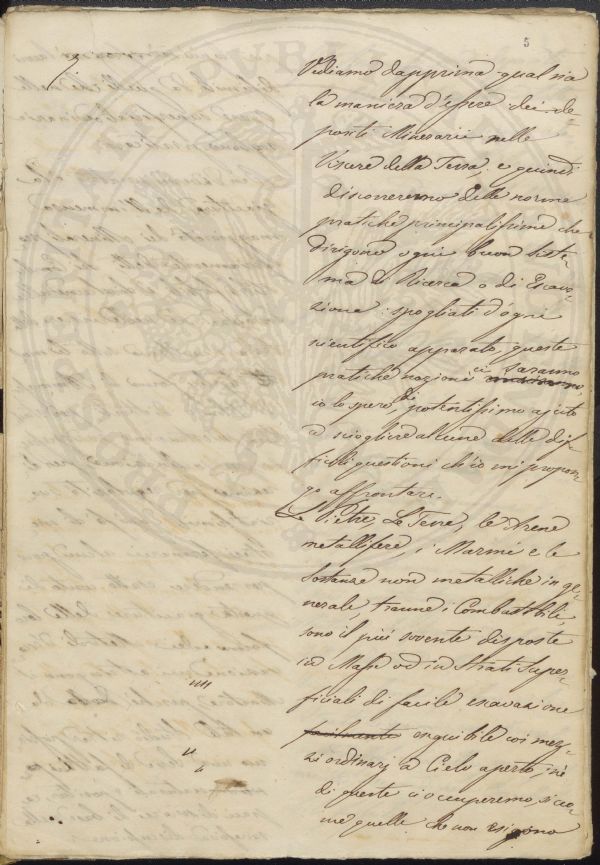 5
Vediamo dapprima qual sia
la maniera d'essere dei de-
positi Minerarii nelle
Viscere della Terra, e quindi
discorreremo delle norme
pratiche principalissime che
dirigono ogni buon siste-
ma di Ricerca o di Escava-
zione: spogliati d'ogni
scientifico apparato, queste
pratiche nozioni ci saranno,
io lo spero, di potentissimo ajuto
a sciogliere alcune delle dif-
ficili questioni ch'io mi propon-
go affrontare.
Le Pietre, Le Terre, le Arene
metallifere, i Marmi e le
Sostanze non metalliche in ge-
nerale, tranne i Combustibili,
sono il più sovente disposte
in Masse od in Strati Super-
ficiali di facile escavazione
facilmente eseguibile coi mez-
zi ordinarj a Cielo aperto; nè
di queste ci occuperemo, sicco-
me quelle che non esigono